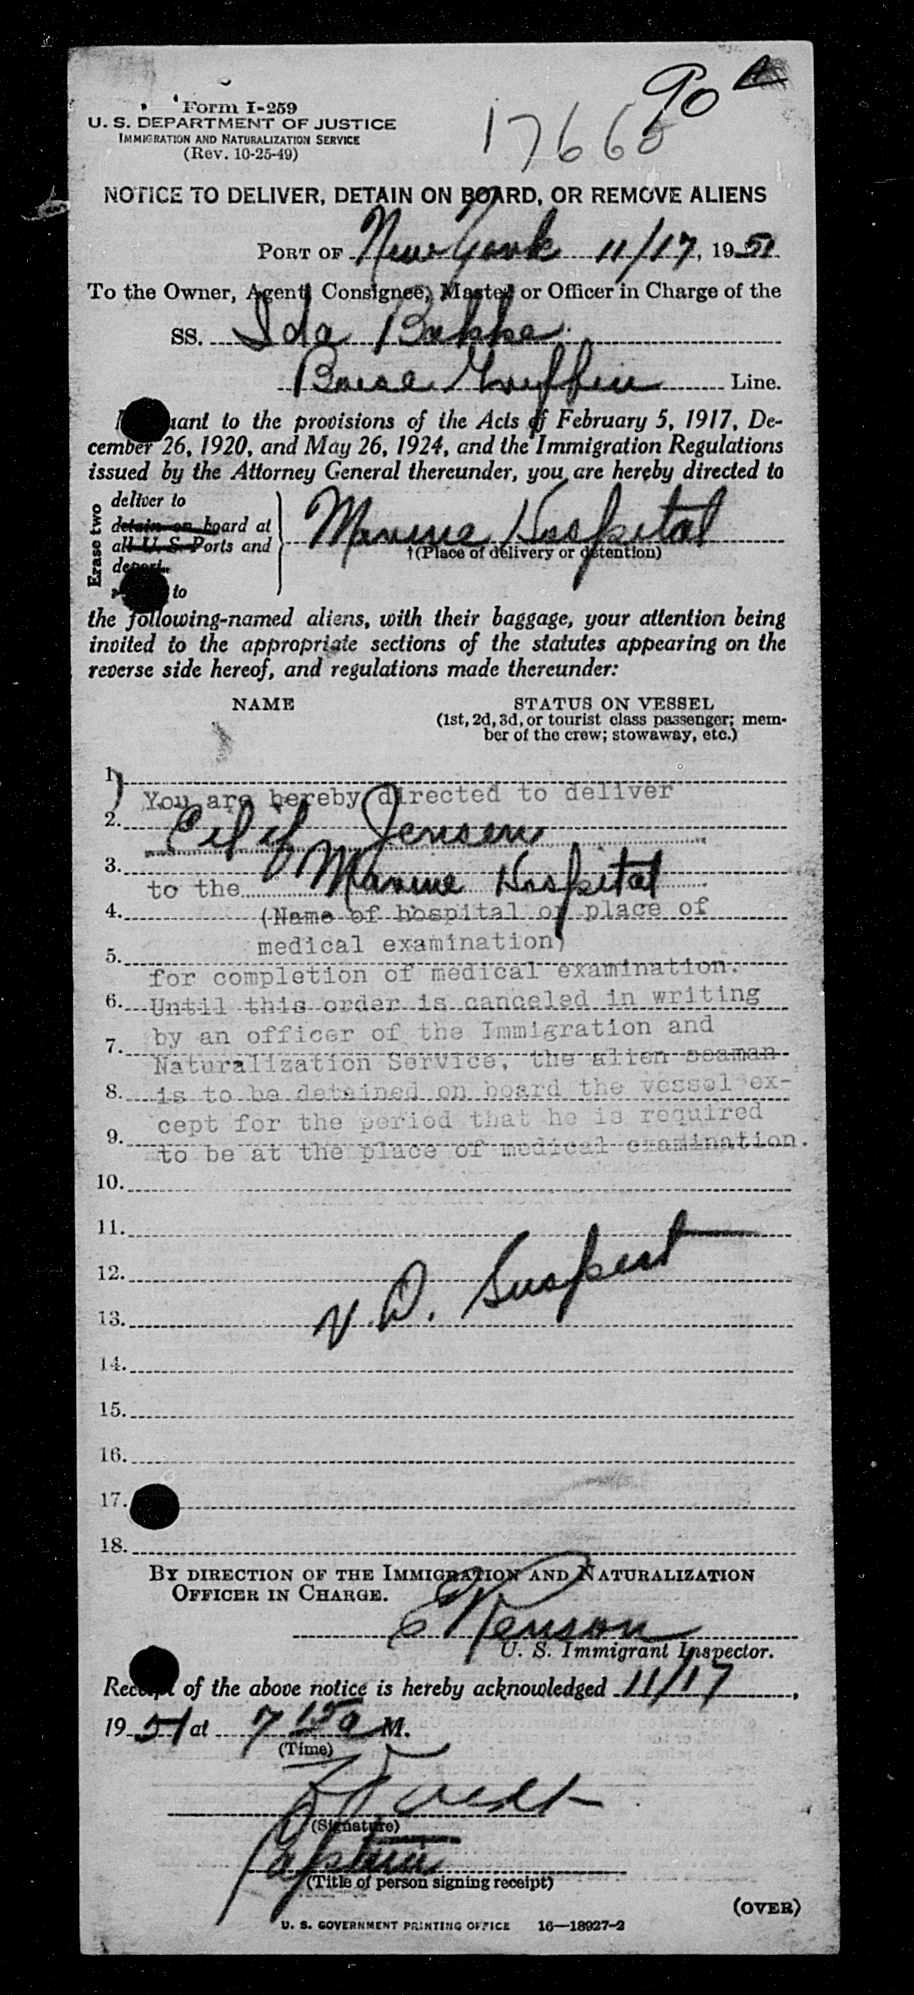 90
17660
Form I-259
U. S. DEPARTMENT OF JUSTICE
IMMIGRATION AND NATURALIZATION SERVICE
(Rev. 10-25-49)
NOTICE TO DELIVER, DETAIN ON BOARD, OR REMOVE ALIENS
PORT OF New York 11/17, 1951
To the Owner, Agent, Consignee, Master or Officer in Charge of the
SS. Ida Bakke
Boise Griffin Line.
uant to the provisions of the Acts of February 5, 1917, De-
cember 26, 1920, and May 26, 1924, and the Immigration Regulations
issued by the Attorney General thereunder, you are hereby directed to
Erase two
deliver to
detain on board at
all U. S. Ports and
to
Marine Hospital
†(Place of delivery or detention)
the following-named aliens, with their baggage, your attention being
invited to the appropriate sections of the statutes appearing on the
reverse side hereof, and regulations made thereunder:
NAME STATUS ON VESSEL
(1st, 2d, 3d, or tourist class passenger; mem-
ber of the crew; stowaway, etc.)
1.
You are hereby directed to deliver
2.
Jensen
3.
to the Marine Hospital
4.
(Name of hospital or place of
medical examination)
5.
for completion of medical examination.
6. Until this order is canceled in writing
by an officer of the Immigration and
7.
Naturalization Service, the alien seaman
8. is to be detained on board the vessel ex-
cept for the period that he is required
9.
to be at the place of medical examination.
10.
11.
12.
V. D. Suspect
13.
14.
15.
16.
17.
18.
BY DIRECTION OF THE IMMIGRATION AND NATURALIZATION
OFFICER IN CHARGE.
U. S. Immigrant Inspector.
Receipt of the above notice is hereby acknowledged 11/17,
1951 at 7 15a M.
(Time)
(Signature)
Captain
(Title of person signing receipt)
(OVER)
U. S. GOVERNMENT PRINTING OFFICE 16—18927-2